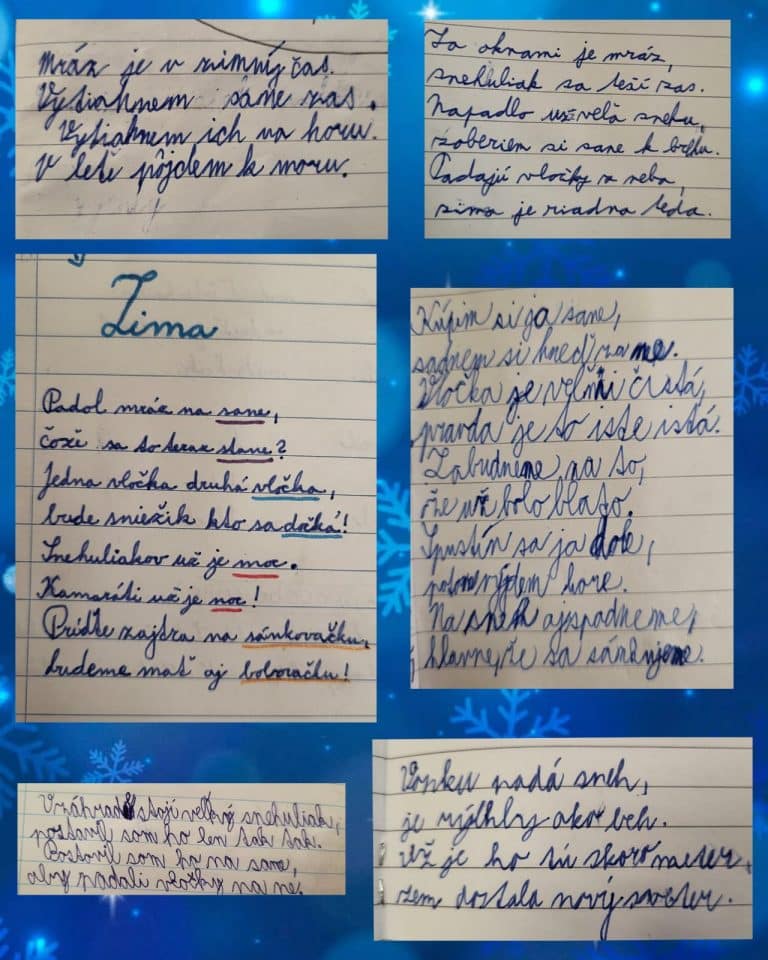 Mráz je v zimný čas.
Vytiahnem sáne zas.
Vytiahnem ich na horu.
V lete pôjdem k moru.
Za oknami je mráz,
snehuliak sa teší zas.
Napadlo už veľa snehu,
zoberiem si sane k behu.
Padajú vločky z neba,
zima je riadna teda.
Zima
Padol mráz na sane,
čože sa to teraz stane?
Jedna vločka druhá vločka,
bude sniežik kto sa dočká!
Snehuliakov už je moc.
Kamaráti už je noc!
Príďte zajtra na sánkovačku,
budeme mať aj bobovačku!
Kúpim si ja sane,
sadnem si hneď za ne.
Vločka je veľmi čistá,
pravda je to iste istá.
Zabudneme na to,
že už bolo blato.
Spustín sa ja dole,
potom vyjdem hore.
Na sneh aj spadneme,
hlavne, že sa sánkujeme.
V záhrade stojí veľký snehuliak,
postavil som ho len tak tak.
Postavil som ho na sane,
aby padali vločky na ne.
Vonku padá sneh,
je rýchly ako beh.
Už je ho tú skoro meter,
zem dostala nový sveter.